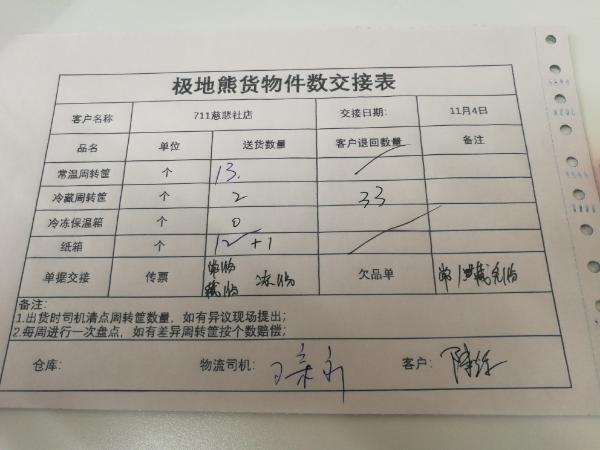 极地熊货物件数交接表
客户名称 711慈悲社店 交接日期: 11月4日
品名 单位 送货数量 客户退回数量 备注
常温周转筐 个 13.
冷藏周转筐 个 2 33
冷冻保温箱 个 0
纸箱 个 12 +1
单据交接 传票 欠品单
备注:
1.出货时司机清点周转筐数量,如有异议现场提出;
2.每周进行一次盘点,如有差异周转筐按个数赔偿;
仓库: 物流司机: 客户: